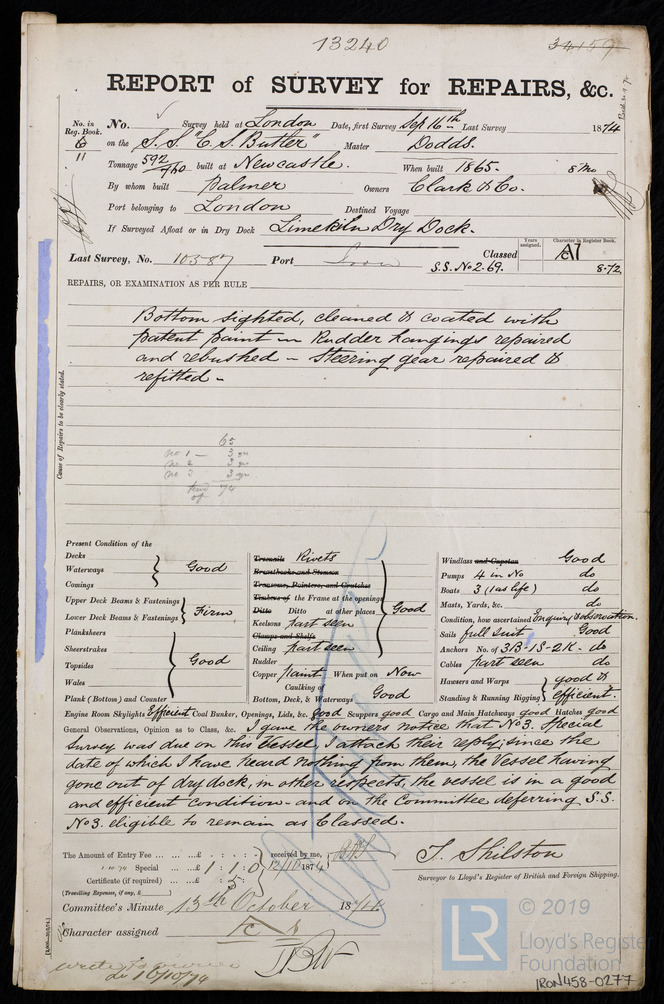 13240
34159
REPORT of SURVEY for REPAIRS, &c.
No. in Reg. Book.
No. Survey held at London Date, first Survey Sep 16th Last Survey 1874
6 on the S.S. "C. S. Butler" Master Dodds.
11
Tonnage 592/740 built at Newcastle. When built 1865. 8 Mo
By whom built Palmer Owners Clark & Co.
Port belonging to London Destined Voyage
If Surveyed Afloat or in Dry Dock Limekiln Dry Dock.
Last Survey, No. 10587 Port Iron Classed Years assigned. Character in Register Book.
S.S. No 2-69. A1 8-72.
REPAIRS, OR EXAMINATION AS PER RULE
Cause of Repairs to be clearly stated.
Bottom sighted, cleaned & coated with
patent paint – Rudder hangings repaired
and rebushed – Steering gear repaired &
refitted –
65
No 1 – 3 yrs
No 2 3 yrs
No 3 3 yrs
74
Present Condition of the
Decks
Waterways Good
Comings
Upper Deck Beams & Fastenings
Lower Deck Beams & Fastenings Firm
Planksheers
Sheerstrakes
Topsides Good
Wales
Plank (Bottom) and Counter
Treenails Rivets
Breasthooks and Stemson
Transoms, Pointers, and Crutches
Timbers of the Frame at the openings
Ditto Ditto at other places Good
Keelsons part seen
Clamps and Shelfs
Ceiling part seen
Rudder
Copper Paint When put on Now
Caulking of
Bottom, Deck, & Waterways Good
Windlass and Capstan Good
Pumps 4 in No do
Boats 3 (1 as life) do
Masts, Yards, &c. do
Condition, how ascertained Enquiry & observation.
Sails full Suit Good
Anchors No. of 3B-1S-2K- do
Cables part seen do
Hawsers and Warps good &
Standing & Running Rigging efficient.
Engine Room Skylights Efficient Coal Bunker, Openings, Lids, &c. Good Scuppers good Cargo and Main Hatchways good Hatches good
General Observations, Opinion as to Class, &c. I gave the owners notice that No 3. Special
Survey was due on this Vessel, I attach their reply; since the
date of which I have heard nothing from them, the Vessel having
gone out of dry dock, in other respects, the vessel is in a good
and efficient condition – and on the Committee deferring S.S.
No 3. eligible to remain as Classed.
The Amount of Entry Fee ... ... ...£ : : received by me,
Special ... ...£ 1 : 1 : 0 12/10 1874
Certificate (if required) ... ...£ : 5 :
(Travelling Expenses, if any, £ )
T. Shilston
Surveyor to Lloyd's Register of British and Foreign Shipping.
Committee's Minute 13th October 1874
Character assigned
10/10/74
LR © 2019
Lloyd's Register
Foundation
IRON458-0277